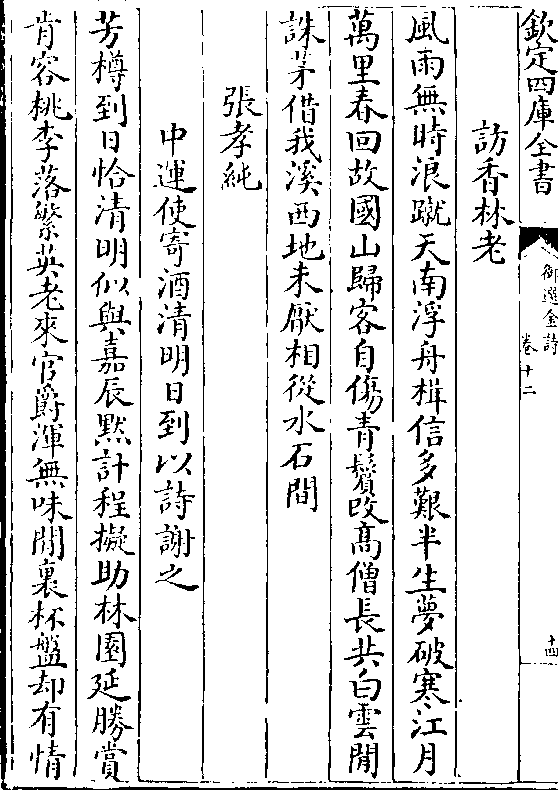 欽定四庫全書
御選金詩
卷十二
十四
訪香林老
風雨無時浪蹴天南浮舟楫信多艱半生夢破寒江月
萬里春回故國山歸客自傷青鬢改髙僧長共白雲閒
誅茅借我溪西地未厭相從水石間
張孝純
中運使寄酒清明日到以詩謝之
芳樽到日恰清明似與嘉辰黙計程擬助林園延勝賞
肯容桃李落繁英老來官爵渾無味閒裏杯盤却有情